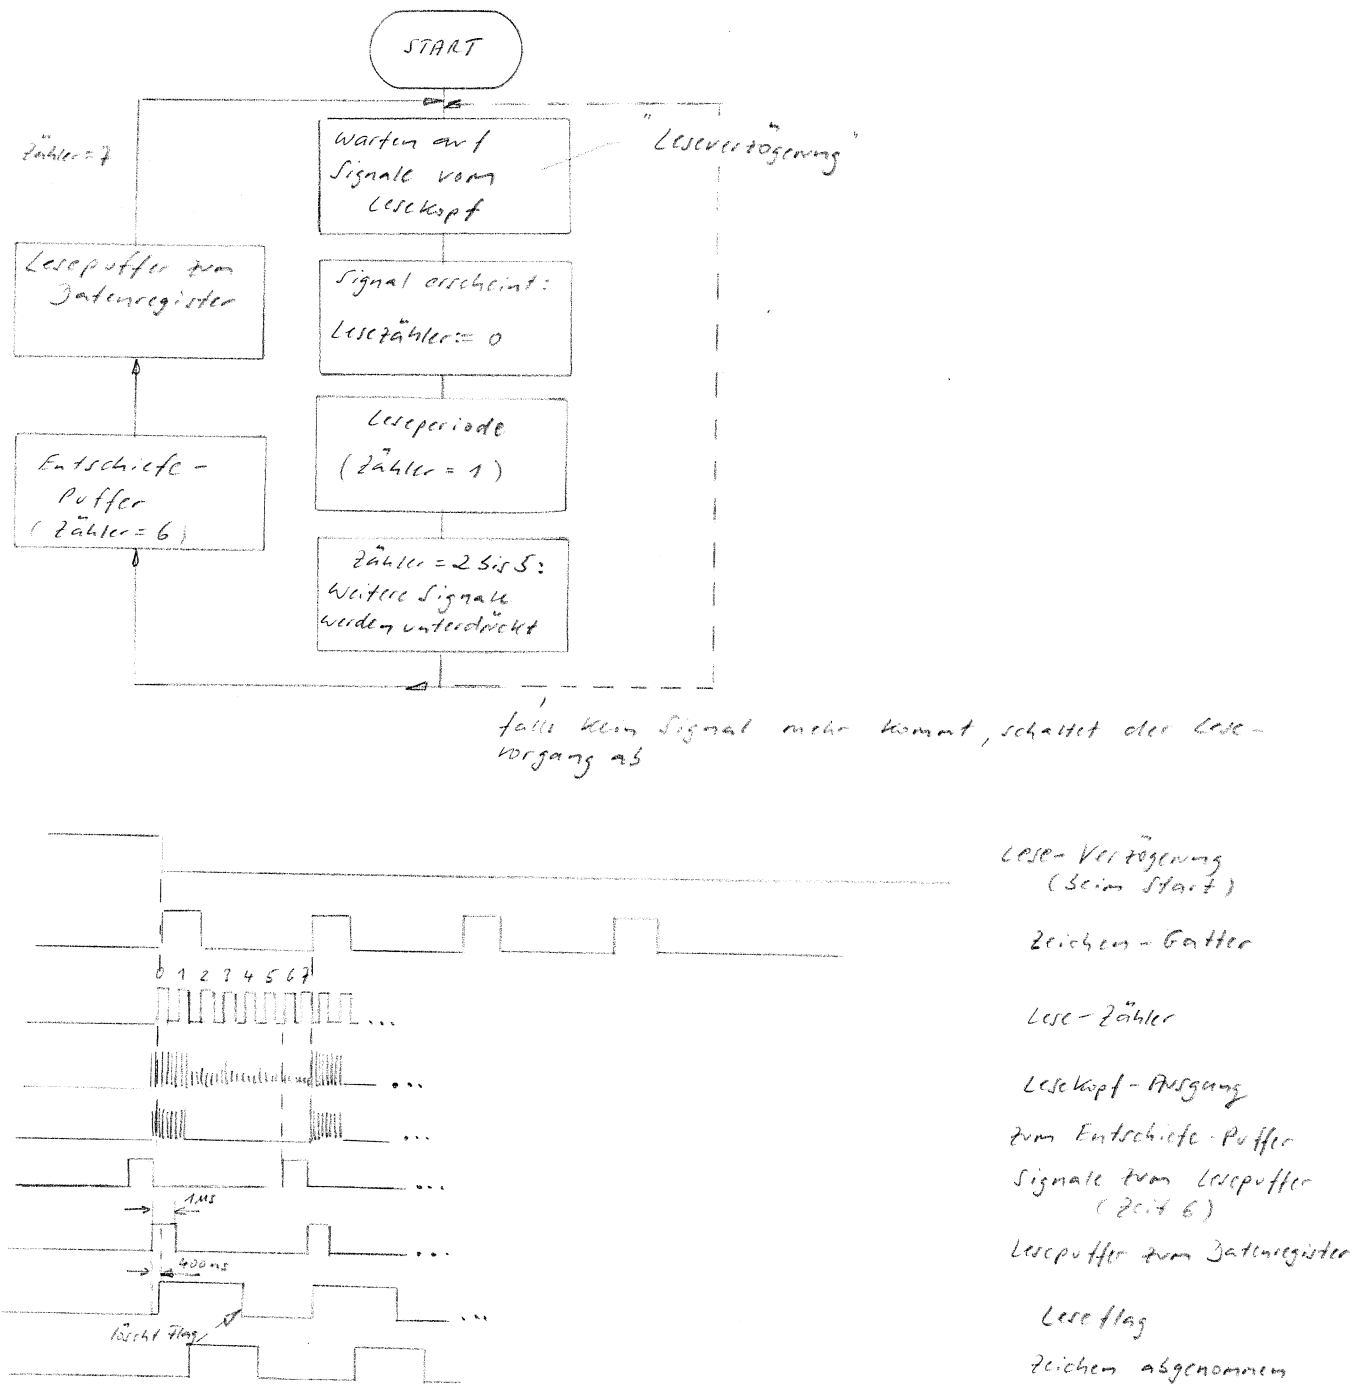 START
Zähler=7
Warten auf
Signale vom
Lesekopf
"Leseverzögerung"
Lesepuffer zum
Datenregister
Signal erscheint:
Lesezähler:= 0
Leseperiode
(Zähler = 1)
Entschiefe-
Puffer
(Zähler=6)
Zähler = 2 bis 5:
Weitere Signale
werden unterdrückt
falls kein Signal mehr kommt, schaltet der Lese-
vorgang ab
Lese-Verzögerung
(beim Start)
Zeichen-Gatter
0 1 2 3 4 5 6 7
...
Lese-Zähler
...
Lesekopf-Ausgang
...
zum Entschiefe-Puffer
...
Signale zum Lesepuffer
(Zeit 6)
1µs
...
Lesepuffer zum Datenregister
400ns
...
Leseflag
löscht Flag
Zeichen abgenommen